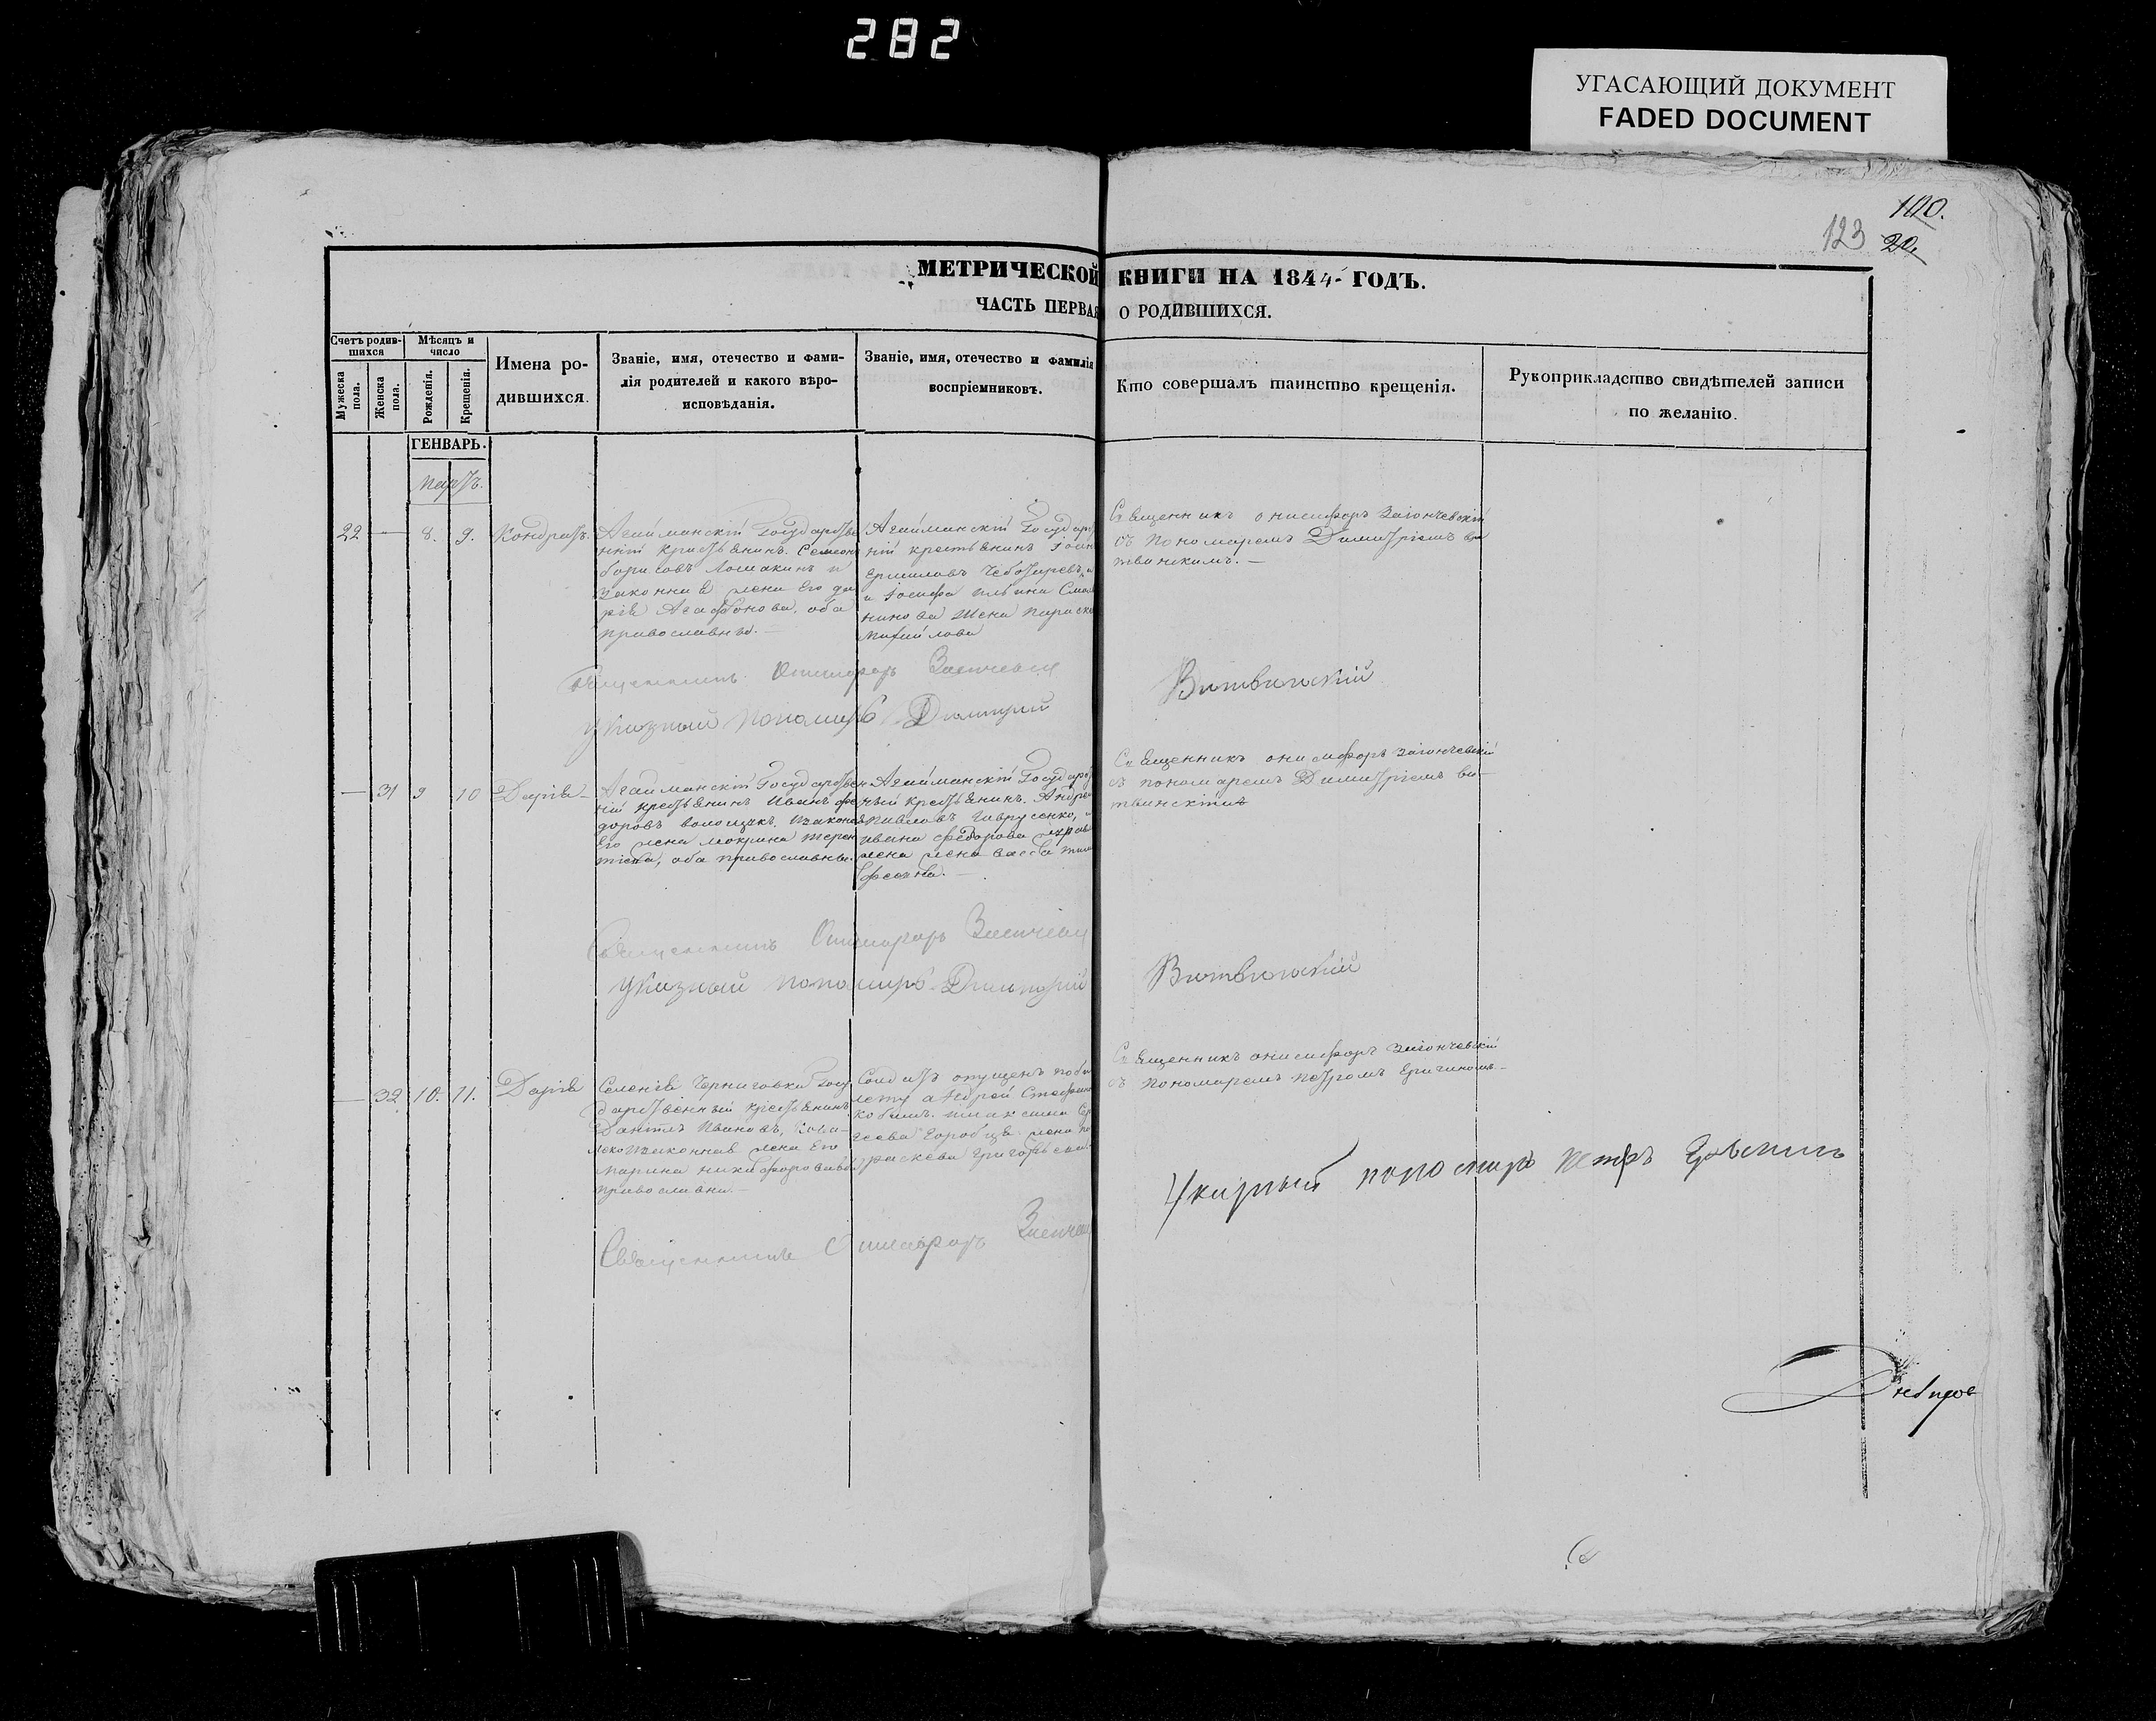 282
УГАСАЮЩИЙ ДОКУМЕНТ
FADED DOCUMENT
100.
123 20.
МЕТРИЧЕСКОЙ КНИГИ НА 1844 ГОДЪ.
ЧАСТЬ ПЕРВАЯ О РОДИВШИХСЯ.
Счетъ родившихся
Мужеска пола.
Женска пола.
Мѣсяцъ и число
Рожденія.
Крещенія.
Имена родившихся.
Званіе, имя, отечество и фами-
лія родителей и какого вѣро-
исповѣданія.
Званіе, имя, отечество и фамилія
воспріемниковъ.
Кто совершалъ таинство крещенія.
Рукоприкладство свидѣтелей записи
по желанію.
ГЕНВАРЬ.
Мартъ.
22 — 8. 9. Кондратъ.
Агайманскій Государстве
нній крестьянинъ Семеонъ
борисовъ Ломакинъ и
законная жена Его да
рія Агафонова, оба
православныя. —
Агайманскій Государст
ній крестьянинъ Іоан
Ермиловъ Чеботаревъ,
и Іосифа ильина
жена параске
михайлова
Священникъ онисифоръ Заіончевскій
съ пономаремъ Димитріемъ ви
твинскимъ. —
Священникъ Онисифоръ
указный пономарь Димитрий Витвинскій
— 31 9 10 Дарія —
Агайманскій Государствен
ній крестьянинъ Иванъ фе
доровъ волощукъ, изаконая
Его жена мокрина терен
тіева, оба православныя.
Агайманскій Государст
ный крестьянинъ. Андрей
павловъ гаврусенко,
ивана федорова
жена васса
Священникъ онисифоръ Заіончевскій
съ пономаремъ Димитріемъ ви—
твинскімъ
Священникъ Онисифоръ
указный пономарь Димитрий Витвинскій
— 32 10. 11. Дарія
Селенія Черниговки Госу
дарственный крестьянинъ
Даніилъ Ивановъ,
изаконная жена Его
Марина никифорова
православни. —
Солдатъ отпущенъ поби
лету андрей Стефан
максима Сер
геева горобца жена па
раскева григорьева
Священникъ онисифоръ Заіончевскій
съ пономаремъ петромъ
Указный пономарь Петръ
Священникъ Онисифоръ